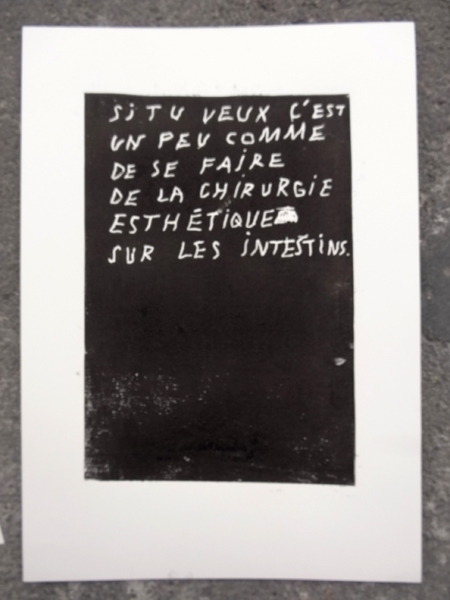 Si TU VEUX C'EST
UN PEU COMME
DE SE FAiRE
DE LA CHIRURGiE
ESTHÉTiQUE
SUR LES iNTESTiNS.